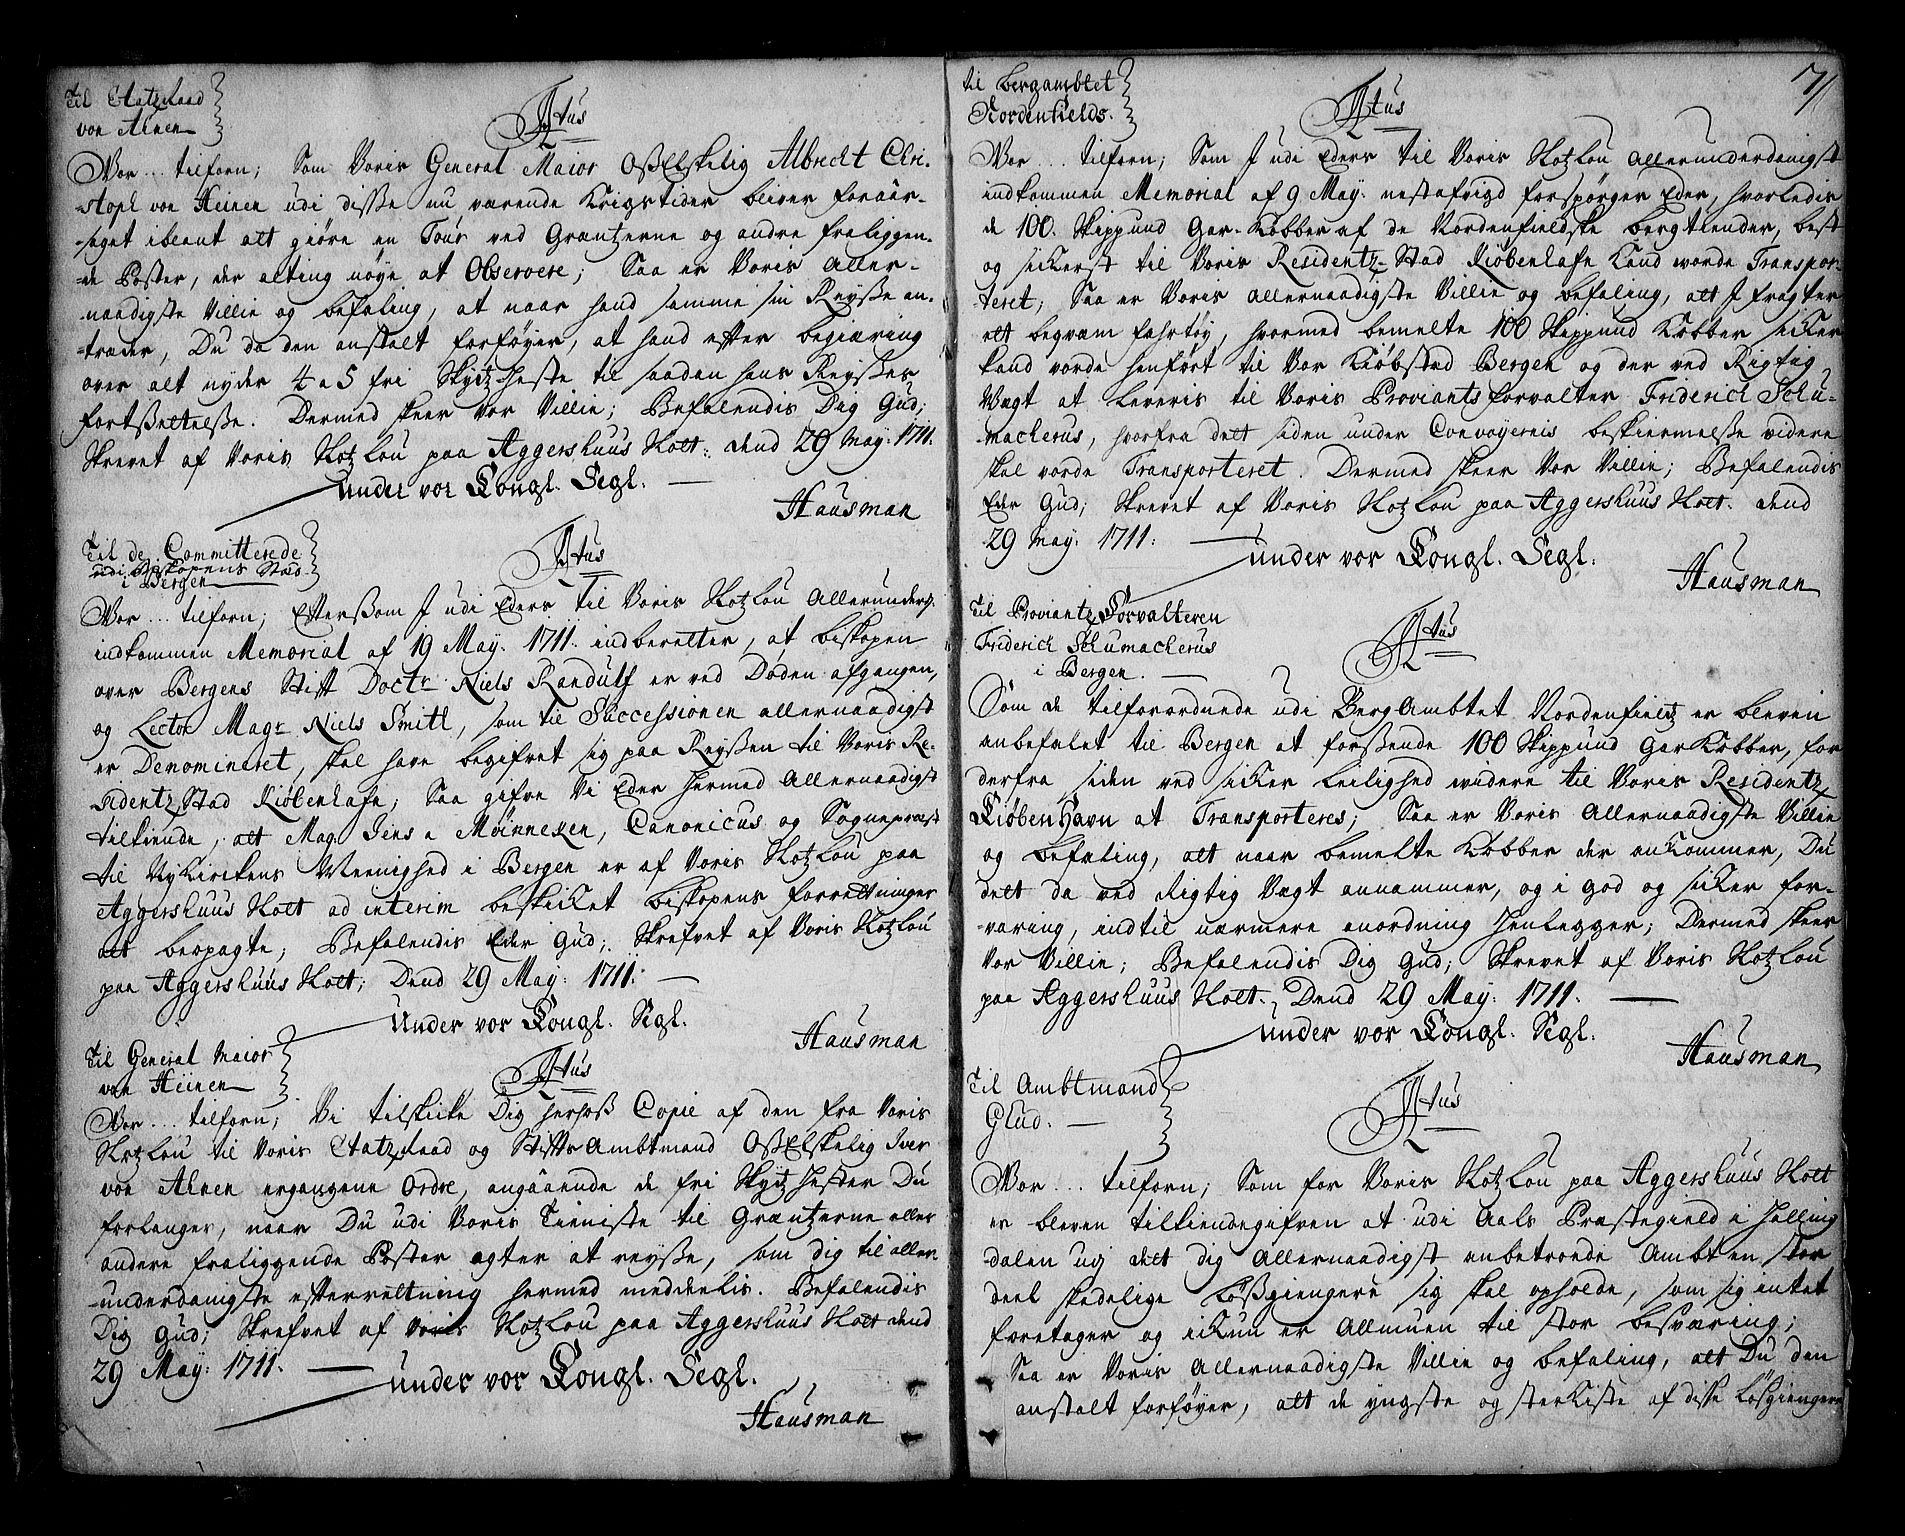 Til Etatzraad
von Ahnen
F4tus
Vor... tilforn; Som Voris General Maior OsßElskelig Albrecht Chri-
stoph von Heinen udi disse nu værende Krigstider bliver foraar-
saget iblant att giøre en Tour ved Grantzerne og andre fraliggen-
de Poster, der alting nøye at Observere; Saa er Voris Aller-
naadigste Villie og befaling, at naar hand samme sin Reysße an-
træder, Du da den anstalt forføyer, at hand efter begiæring
over alt nyder 4 a 5 fri Skydtz Heste til saadan hans Reysßes
fortsßettelsße. Dermed skeer Vor Villie; Befalendis Dig Gud;
Skrevet af Voris Slotz Lou paa Aggershuus Slott: dend 29 May: 1711.
under vor Kongl. Segl.
Hausman
Til de Committerede
udi Biskopens Stæd
i Bergen
F4tus
Vor... tilforn; Eftersßom I udi Eders til Voris Slotz Lou Allerunderd.
indkommen Memorial af 19 May. 1711. indberetter, at biskopen
over Bergens Stift Doctr Niels Randulf er ved Døden afgangen,
og Lector Magr Niels Smith, som til Successionen allernaadigst
er Denomineret, skal have begifvet sig paa Reysßen til Voris Re-
sidentz Stad Kiøbenhafn; Saa gifve Vi Eder hermed Allernaadigst
tilkiende, att Mag. Jens a Møinneken, Canonicus og Sognepræst
til Nykirkens Meenighed i Bergen er af Voris Slotz Lou paa
Aggershuus Slott ad interim beskicket biskopens forrettninger
att beopagte; Befalendis Eder Gud; Skrefvet af Voris Slotz Lou
paa Aggershuus Slott; Dend 29 May: 1711:
Under vor Kongl. Segl.
Hausman
Til General Maior
von Heinen
F4tus
Vor... tilforn; Vi tilskicke Dig herhoß Copie af den fra Voris
Slotz Lou til Voris Etatz Raad og Stifts Ambtmand OsßElskelig Iver
von Ahnen ergangene Ordre, angaaende de fri Skydtz Hester Du
forlanger, naar Du udi Voris Tieniste til Grændtzerne eller
andere fraliggende Poster agter at reysße, som dig til aller-
underdanigste efterrettning hermed meddeelis. Befalendis
Dig Gud; Skrefvet af Voris Slotz Lou paa Aggershuus Slott dend
29 May: 1711.
under vor Kongl. Segl.
Hausman
7//
til Bergambtet
Nordenfields.
F4tus
Vor... tilforn; Som I udi Eders til Voris Slotz Lou allerunderdanigst
indkommen Memorial af 9 May. nestafvigd forspørger Eder, hvorledis
de 100. Skippund Gar-Kobber af de Nordenfieldske bergklender, best
og sikerst til Voris Residentz-Stad Kiøbenhafn Kand worde Transpor-
teret; Saa er Voris allernaadigste Villie og befaling, att I fragter
att beqvæm fahrtøy, hvormed bemelte 100 Skippund Kobber sicker
kand vorde henført til Vor Kiøbsted Bergen og der ved Rigtig
Vægt at Leveris til Voris Proviantsforvalter Friderich Schu-
macherus, hvorfra dett siden under Convoyernis beskiermelsße videre
skal vorde Transporteret. Dermed skeer Vor Villie; Befalendis
Eder Gud; Skrevet af Voris Slotz Lou paa Aggershuus Slott. dend
29 May: 1711:
under vor Kongl. Segl:
Hausman
Til Proviantz Forvalteren
Friderich Schumacherus
i Bergen.
F4tus
Som de tilforordnede udi BergAmbtet Nordenfieldz er bleven
anbefalet til Bergen at forsßende 100 Skippund Gar Kobber, for
derfra siden ved sicker leilighed widere til Voris Residentz
Kiøben Havn at Transporteres; Saa er Voris Allernaadigste Villie
og befaling, att naar bemelte Kobber der ankommer, Du
dett da ved Rigtig Vægt annammer, og i god og sicker for-
varing, indtil nærmere anordning henlegger; Dermed skeer
Vor Villie; Befalendis Dig Gud; Skrevet af Voris Slotz Lou
paa Aggershuus Slott. Dend 29 May: 1711.
under vor Kongl. Segl:
Hausman
Til Ambtmand
Glud.
F4tus
Vor... tilforn; Som for Voris Slotz Lou paa Aggershuus Slott
er bleven tilkiendegifven at udi Aals Præstegield i Halling
dalen udj dett dig Allernaadigst anbetroede Ambt en stor
deel skadelige Løsßgiengere sig skal opholde, som sig intet
foretager og ickun er Allmuen til stor besværing;
Saa er Voris Allernaadigste Villie og befaling, att Du den
anstalt forføyer, att de yngste og sterkiste af disse Løsgiengere